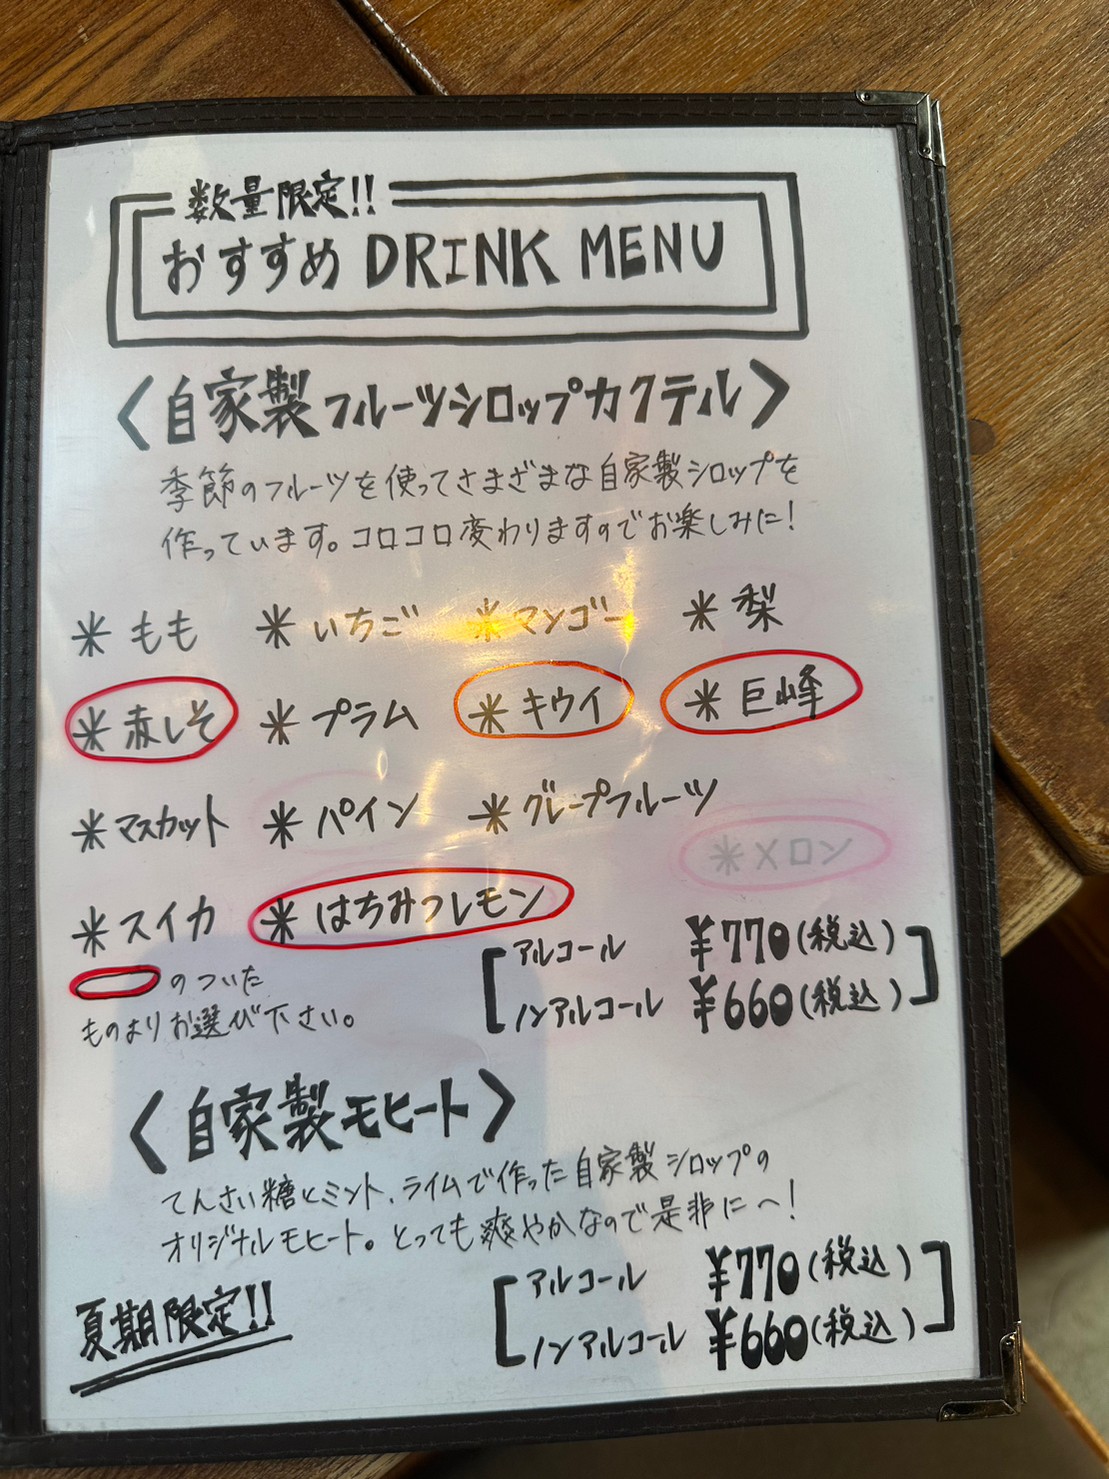 数量限定!!
おすすめ DRINK MENU
〈自家製フルーツシロップカクテル〉
季節のフルーツを使ってさまざまな自家製シロップを
作っています。コロコロ変わりますのでお楽しみに!
＊もも ＊いちご ＊マンゴー ＊梨
＊赤しそ ＊プラム ＊キウイ ＊巨峰
＊マスカット ＊パイン ＊グレープフルーツ
＊メロン
＊スイカ ＊はちみつレモン
のついた
ものよりお選び下さい。
アルコール ¥770(税込)
ノンアルコール ¥660(税込)
〈自家製モヒート〉
てんさい糖とミント、ライムで作った自家製シロップの
オリジナルモヒート。とっても爽やかなので是非に〜!
夏期限定!!
アルコール ¥770(税込)
ノンアルコール ¥660(税込)